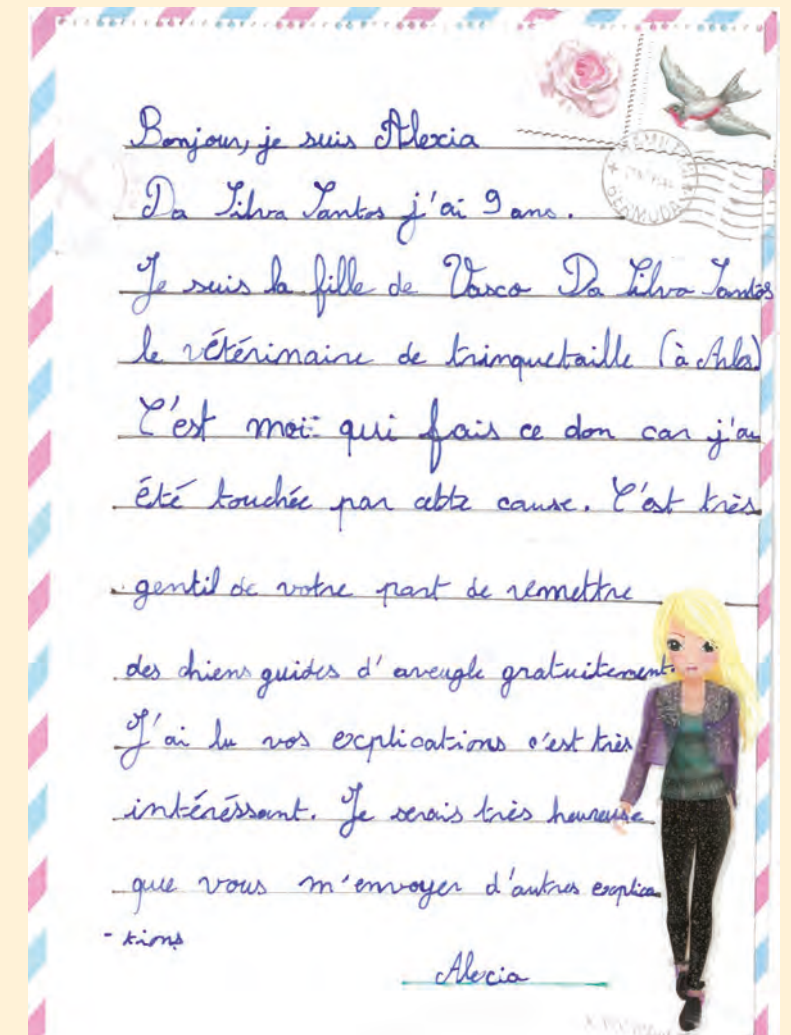 Bonjour, je suis Alexia
Da Silva Santos j'ai 9 ans.
Je suis la fille de Vasco Da Silva Santos
le vétérinaire de trinquetaille (à Arles)
C'est moi qui fais ce don car j'ai
été touchée par cette cause. C'est très
gentil de votre part de remettre
des chiens guides d'aveugle gratuitement.
J'ai lu vos explications c'est très
intéréssant. Je serais très heureuse
que vous m'envoyer d'autres explica
-tions
Alexia
BERMUDA